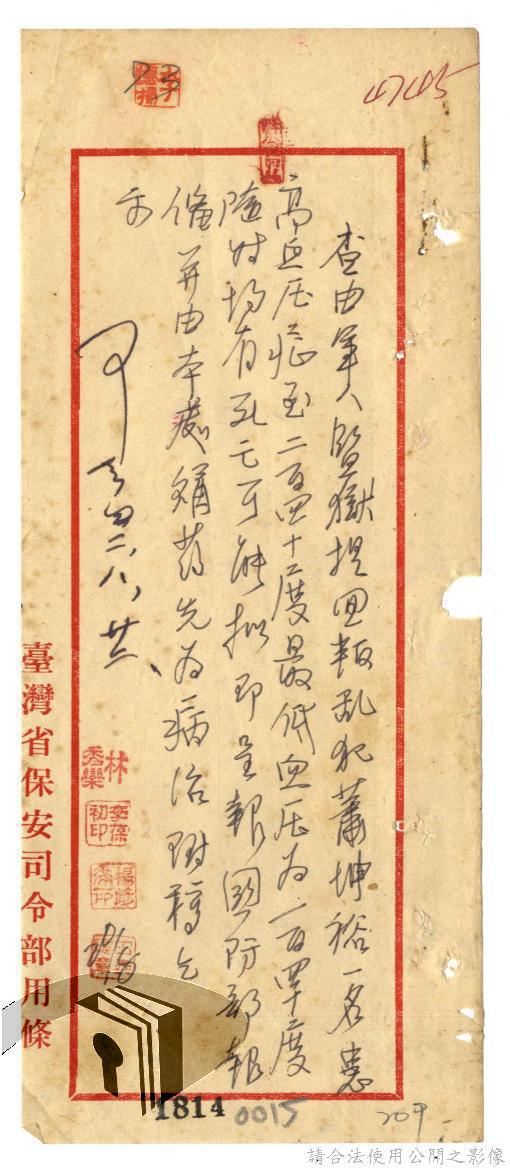 4745
查由軍人監獄提回叛乱犯蕭坤裕一名患
高血压症至二百四十度最低血压为一百四十度
随时均有死亡可能拟即呈報國防部報
備并由本處購药先为病治附稿乞
示
四二、八、廿
林秀欒
臺灣省保安司令部用條
1814
0015
209
請合法使用公開之影像